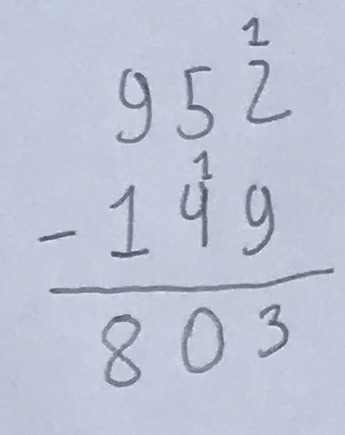 1
952
1
- 149
803